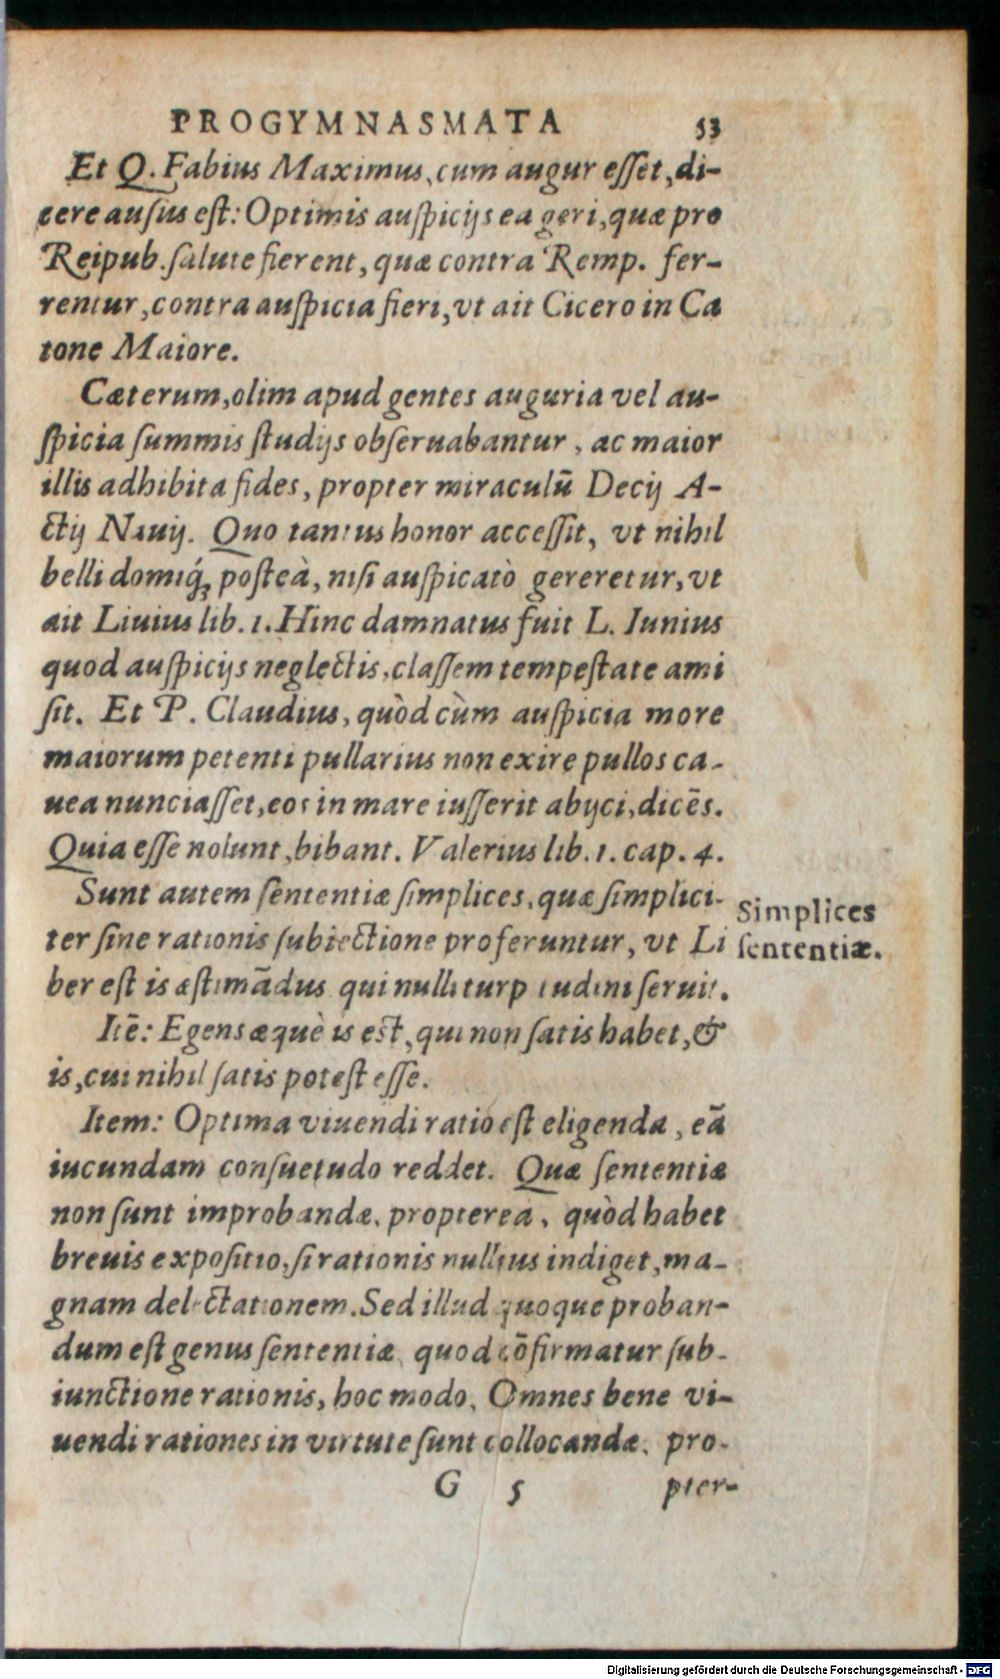 PROGYMNASMATA 53
Et Q. Fabius Maximus, cum augur esset, di-
cere ausus est: Optimis auspicijs ea geri, quæ pro
Reipub. salute fierent, quæ contra Remp. fer-
rentur, contra auspicia fieri, vt ait Cicero in Ca
tone Maiore.
Cæterum, olim apud gentes auguria vel au-
spicia summis studijs obseruabantur, ac maior
illis adhibita fides, propter miraculū Decij A-
ctij Nauij. Quo tantus honor accessit, vt nihil
belli domiq́; posteà, nisi auspicatò gereretur, vt
ait Liuius lib. 1. Hinc damnatus fuit L. Iunius
quod auspicijs neglectis, classem tempestate ami
sit. Et P. Claudius, quòd cùm auspicia more
maiorum petenti pullarius non exire pullos ca-
uea nunciasset, eos in mare iusserit abijci, dicēs.
Quia esse nolunt, bibant. Valerius lib. 1. cap. 4.
Sunt autem sententiæ simplices, quæ simplici-
ter sine rationis subiectione proferuntur, vt Li
ber est is æstimādus qui nulli turpitudini seruit.
Itē: Egens æquè is est, qui non satis habet, &
is, cui nihil satis potest esse.
Item: Optima viuendi ratio est eligenda, eā
iucundam consuetudo reddet. Quæ sententiæ
non sunt improbandæ, propterea, quòd habet
breuis expositio, si rationis nullius indiget, ma-
gnam delectationem. Sed illud quoque proban-
dum est genus sententiæ, quod cōfirmatur sub-
iunctione rationis, hoc modo, Omnes bene vi-
uendi rationes in virtute sunt collocandæ, pro-
G 5 pter-
Simplices
sententiæ.
Digitalisierung gefördert durch die Deutsche Forschungsgemeinschaft - DFG